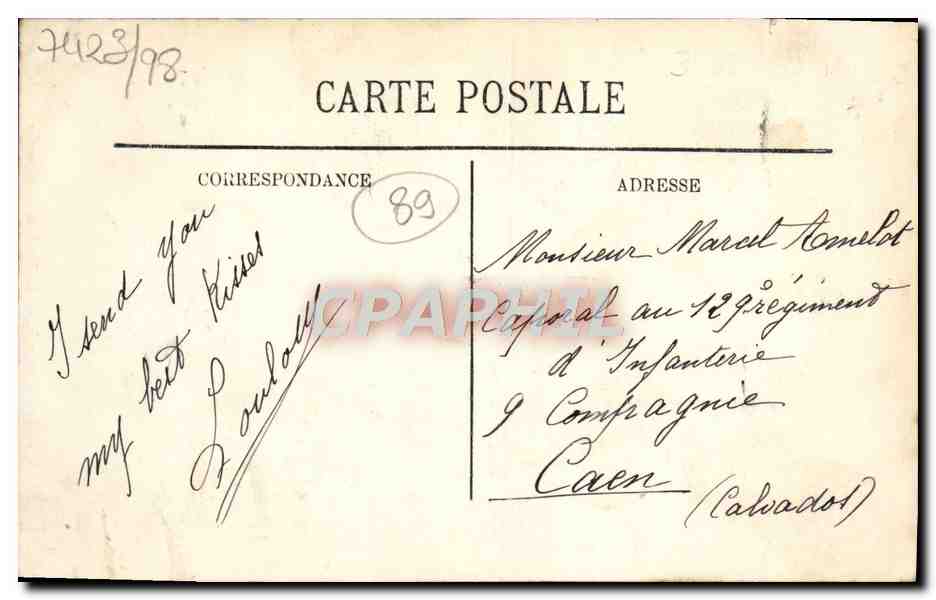 7423/98
CARTE POSTALE
CORRESPONDANCE
89
I send you
my best Kisses
Loulou
ADRESSE
Monsieur Marcel Amelot
Caporal au 129e régiment
d'Infanterie
9 Compagnie
Caen
(Calvados)
CPAPHIL
3